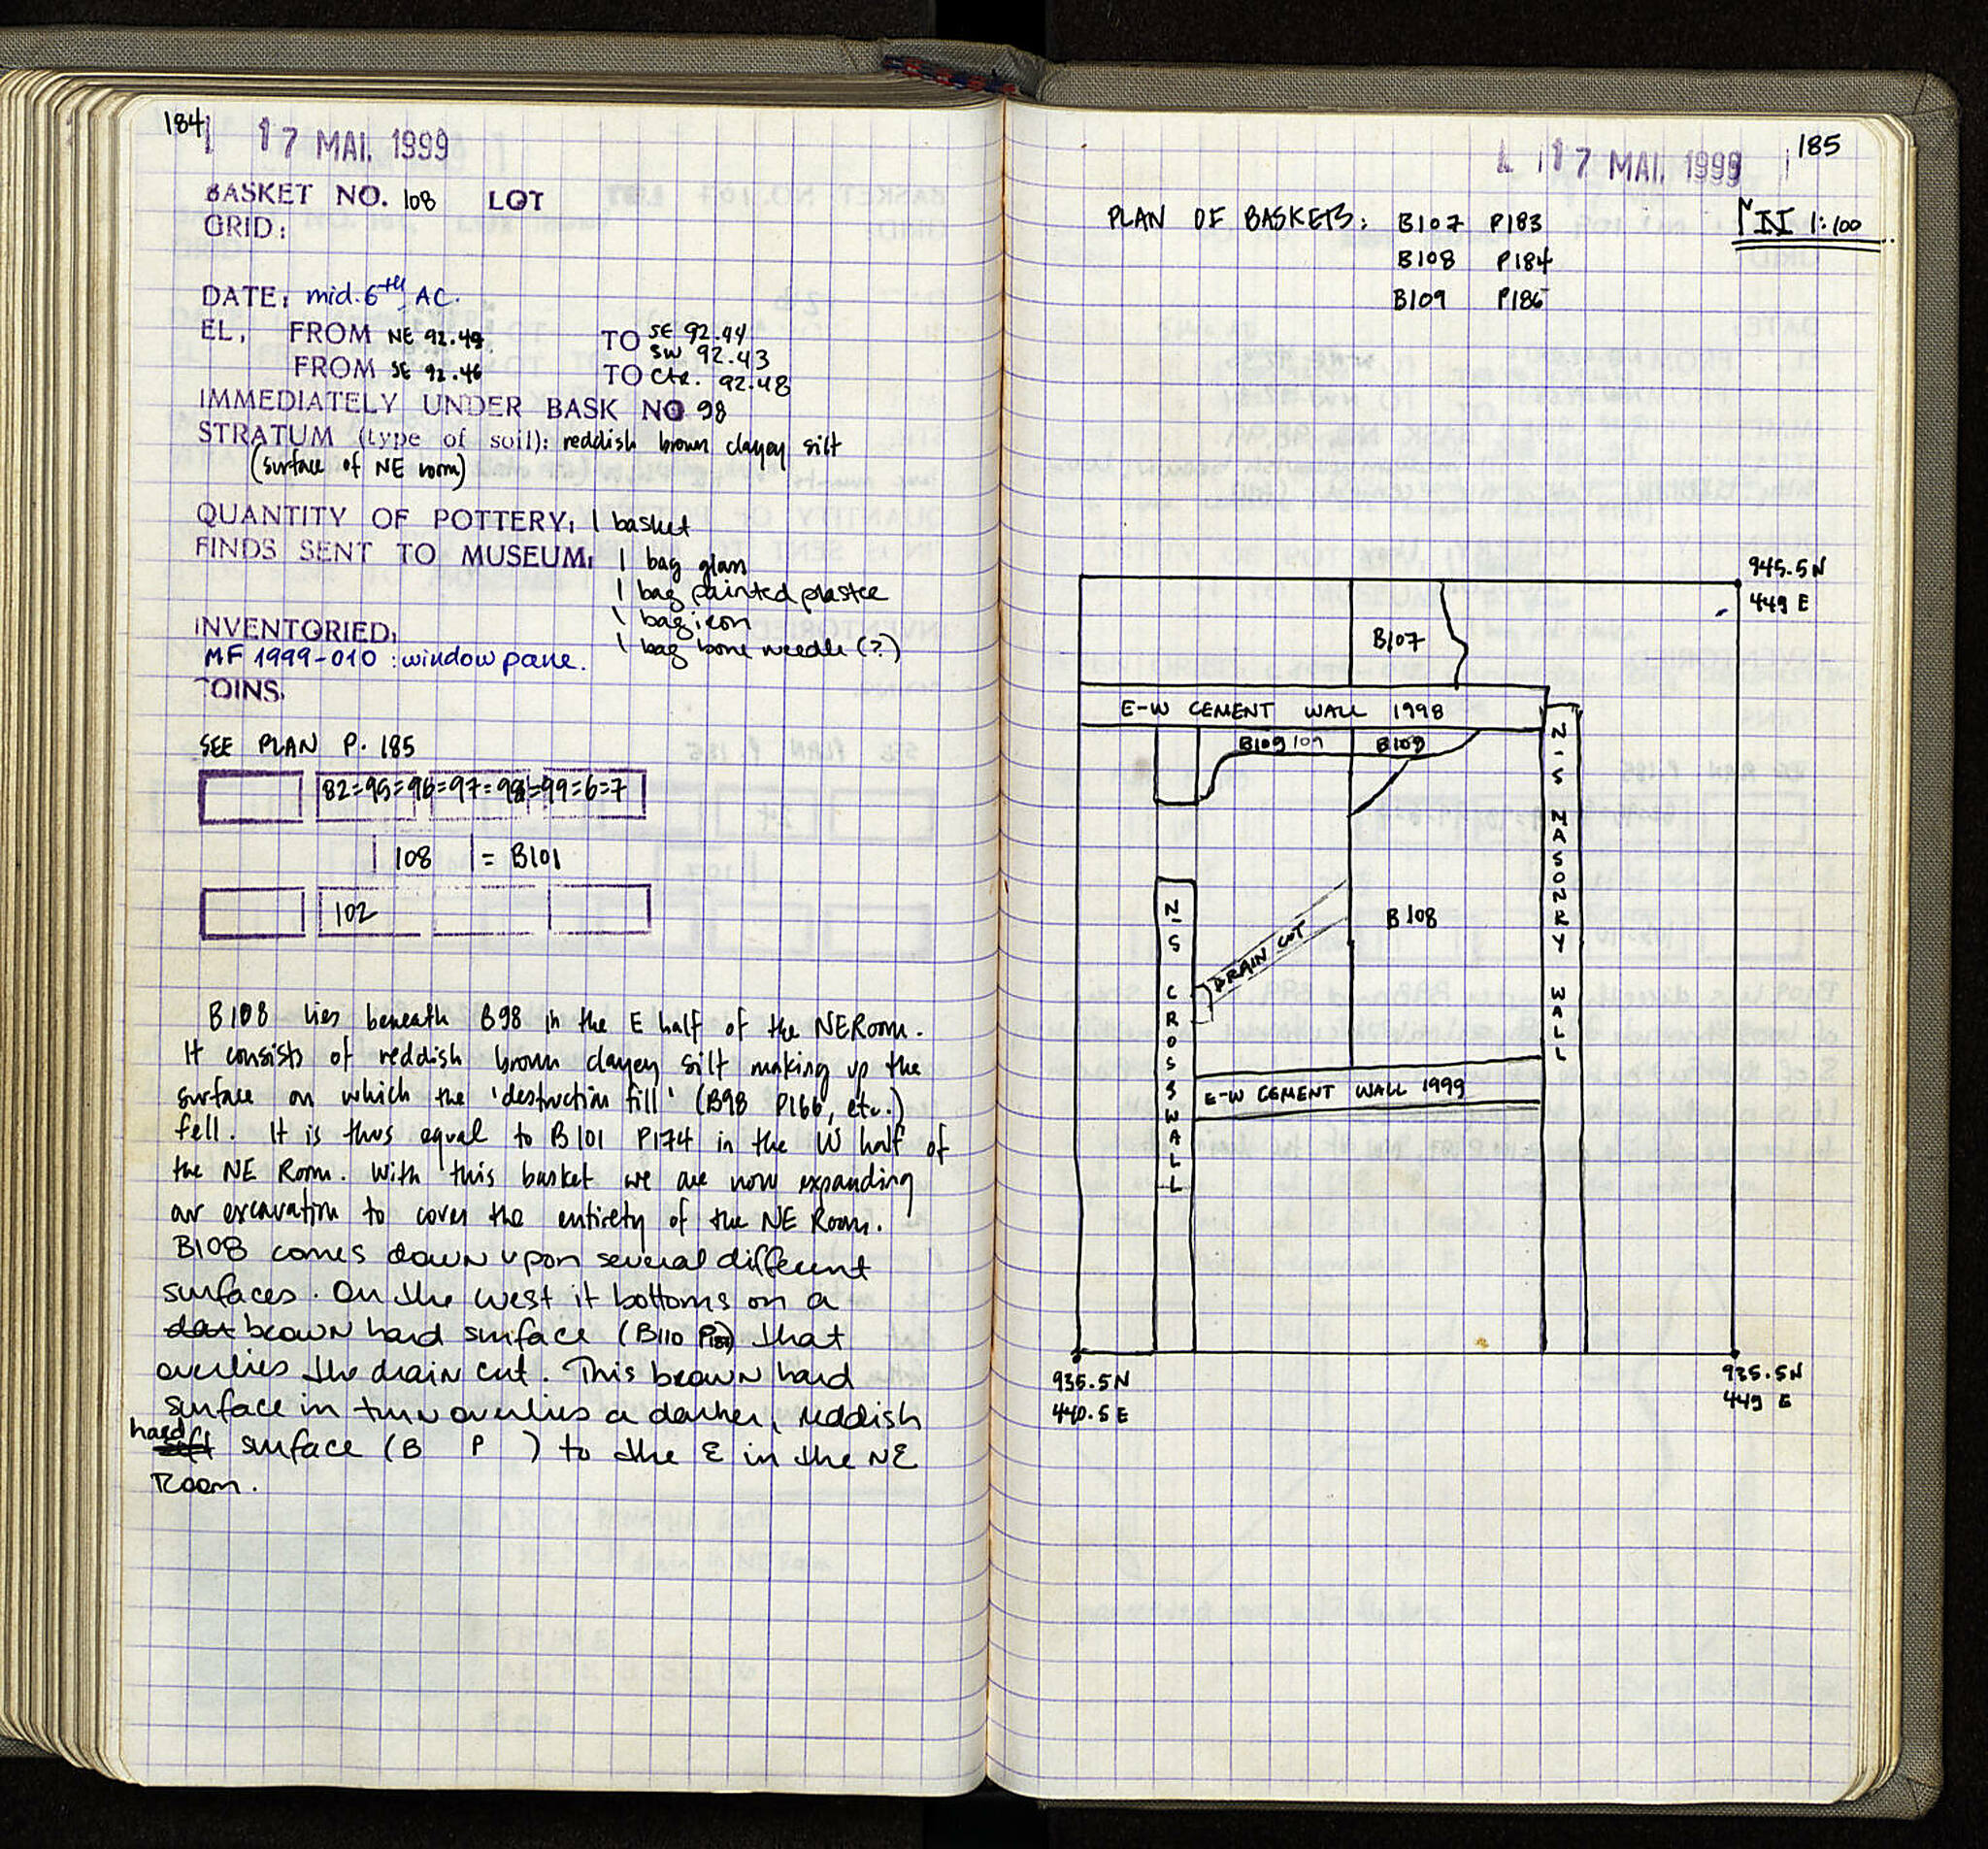 184
17 MAI. 1999
BASKET NO. 108 LOT
GRID:
DATE: mid. 6th AC.
EL. FROM NE 92.49 TO SE 92.44
SW 92.43
FROM SE 92.46 TO Ctr. 92.48
IMMEDIATELY UNDER BASK NO 98
STRATUM (type of soil): reddish brown clayey silt
(surface of NE room)
QUANTITY OF POTTERY: 1 basket
FINDS SENT TO MUSEUM: 1 bag glass
1 bag painted plaster
1 bag iron
1 bag bone needle (?)
INVENTORIED:
MF 1999-010 : window pane.
COINS.
SEE PLAN P. 185
82=95=96=97=98=99=6=7
108 = B101
102
B108 lies beneath B98 in the E half of the NE Room.
It consists of reddish brown clayey silt making up the
surface on which the 'destruction fill' (B98 P166, etc.)
fell. It is thus equal to B101 P174 in the W half of
the NE Room. With this basket we are now expanding
our excavation to cover the entirety of the NE Room.
B108 comes down upon several different
surfaces. On the West it bottoms on a
brown hard surface (B110 ) that
overlies the drain cut. This brown hard
surface in turn overlies a darker, reddish
hard soft surface (B P ) to the E in the NE
Room.
185
17 MAI. 1999
PLAN OF BASKETS: B107 P183
B108 P184
B109 P186
N 1:100
945.5N
449 E
B107
E-W CEMENT WALL 1998
B109 109 B109
N-S MASONRY WALL
N-S CROSS WALL
DRAIN CUT
B108
E-W CEMENT WALL 1999
935.5N
440.5 E
935.5N
449 E